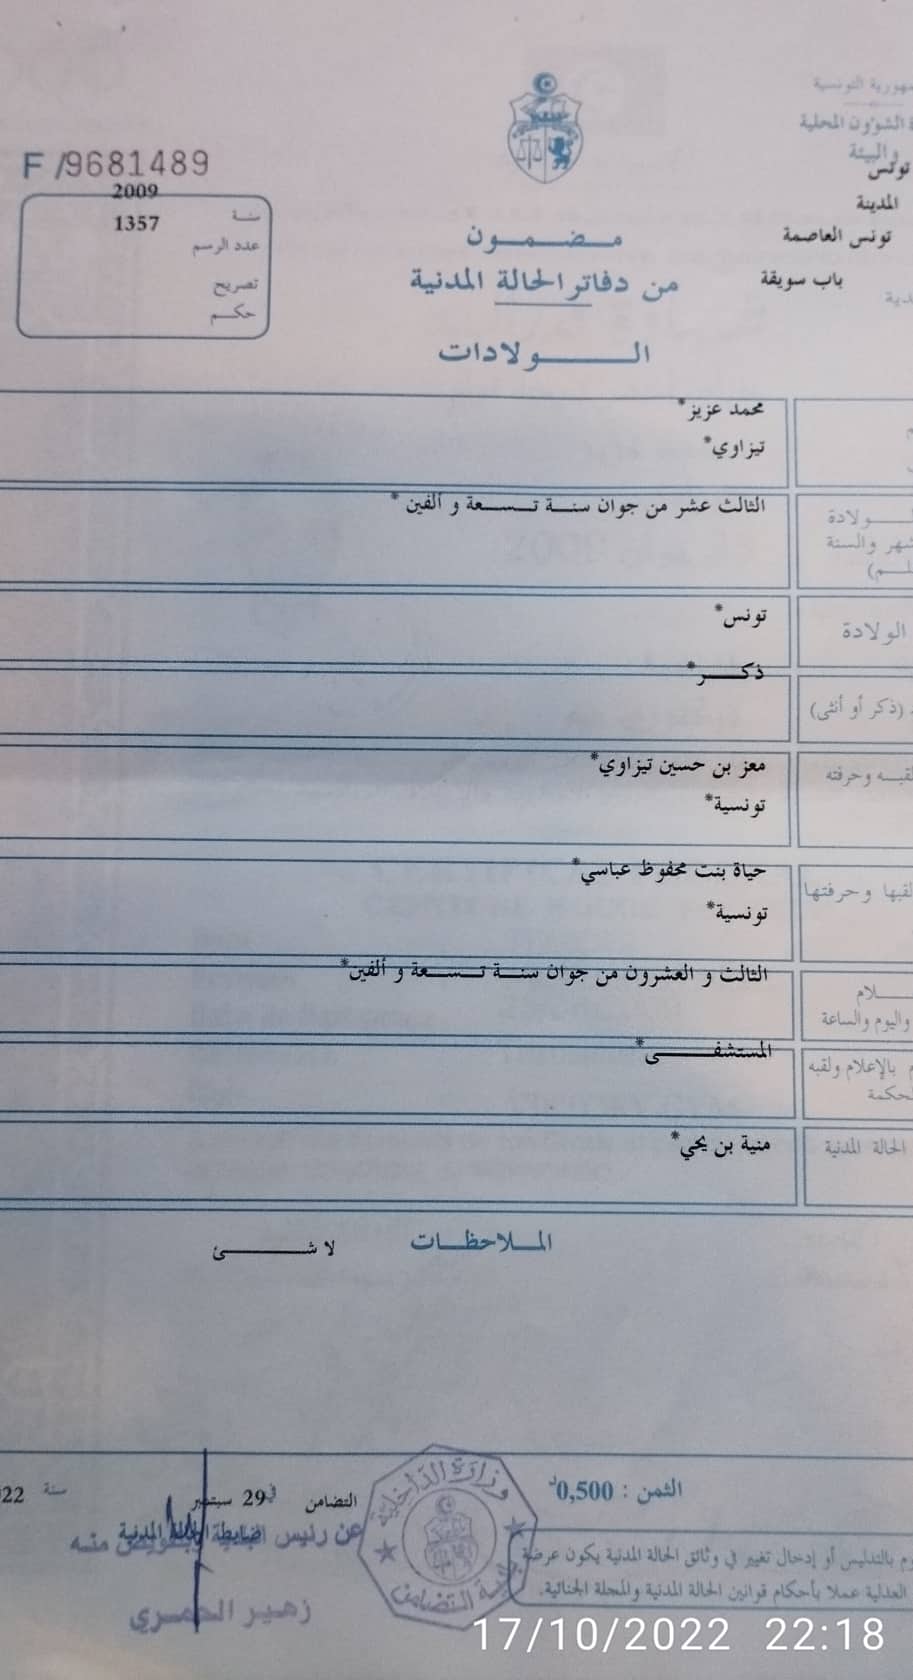 الجمهورية التونسية
الشؤون المحلية
والبيئة
تونس
المدينة
تونس العاصمة
باب سويقة
F/9681489
2009
سنة
1357
عدد الرسم
تصريح
حكم
مضمون
من دفاتر الحالة المدنية
الولادات
محمد عزيز*
تيزاوي*
الولادة
الثالث عشر من جوان سنة تسعة و ألفين*
والسنة
الولادة
تونس*
(ذكر أو أنثى)
ذكر*
وحرفته
معز بن حسين تيزاوي*
تونسية*
وحرفتها
حياة بنت محفوظ عباسي*
تونسية*
الثالث و العشرون من جوان سنة تسعة و ألفين*
واليوم والساعة
المستشفى*
بالإعلام ولقبه
الحالة المدنية
منية بن يحي*
الملاحظات
لا شئ
الثمن : 0,500د
التضامن في 29 سبتمبر سنة 22
ضابط الحالة المدنية
عن رئيس البلدية وبتفويض منه
زهير الحمري
وزارة الداخلية
بلدية التضامن
بالتدليس أو إدخال تغيير في وثائق الحالة المدنية يكون عرضة
العدلية عملا بأحكام قوانين الحالة المدنية والمجلة الجنائية.
17/10/2022 22:18